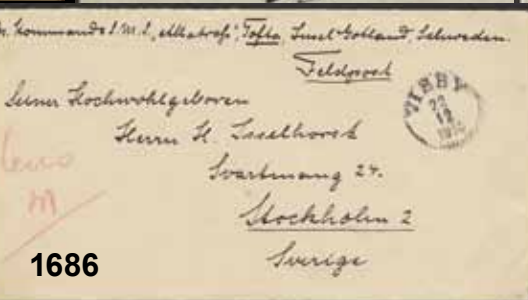 Kommando S.M.S. „Albatross", Tofta, Insel Gotland, Schweden.
Feldpost
Seiner Hochwohlgeboren
Herrn H. Isselhorst
Svartmang 24.
Stockholm 2
Sverige
VISBY
23
12
1686